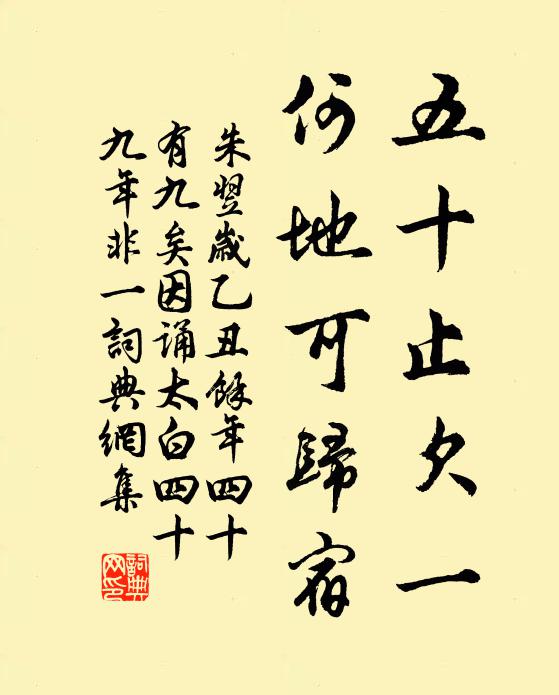 五十止欠一
何地可歸宿
朱翌歲乙丑餘年四十
有九矣因誦太白四十
九年非一詞典網集
詞典網印